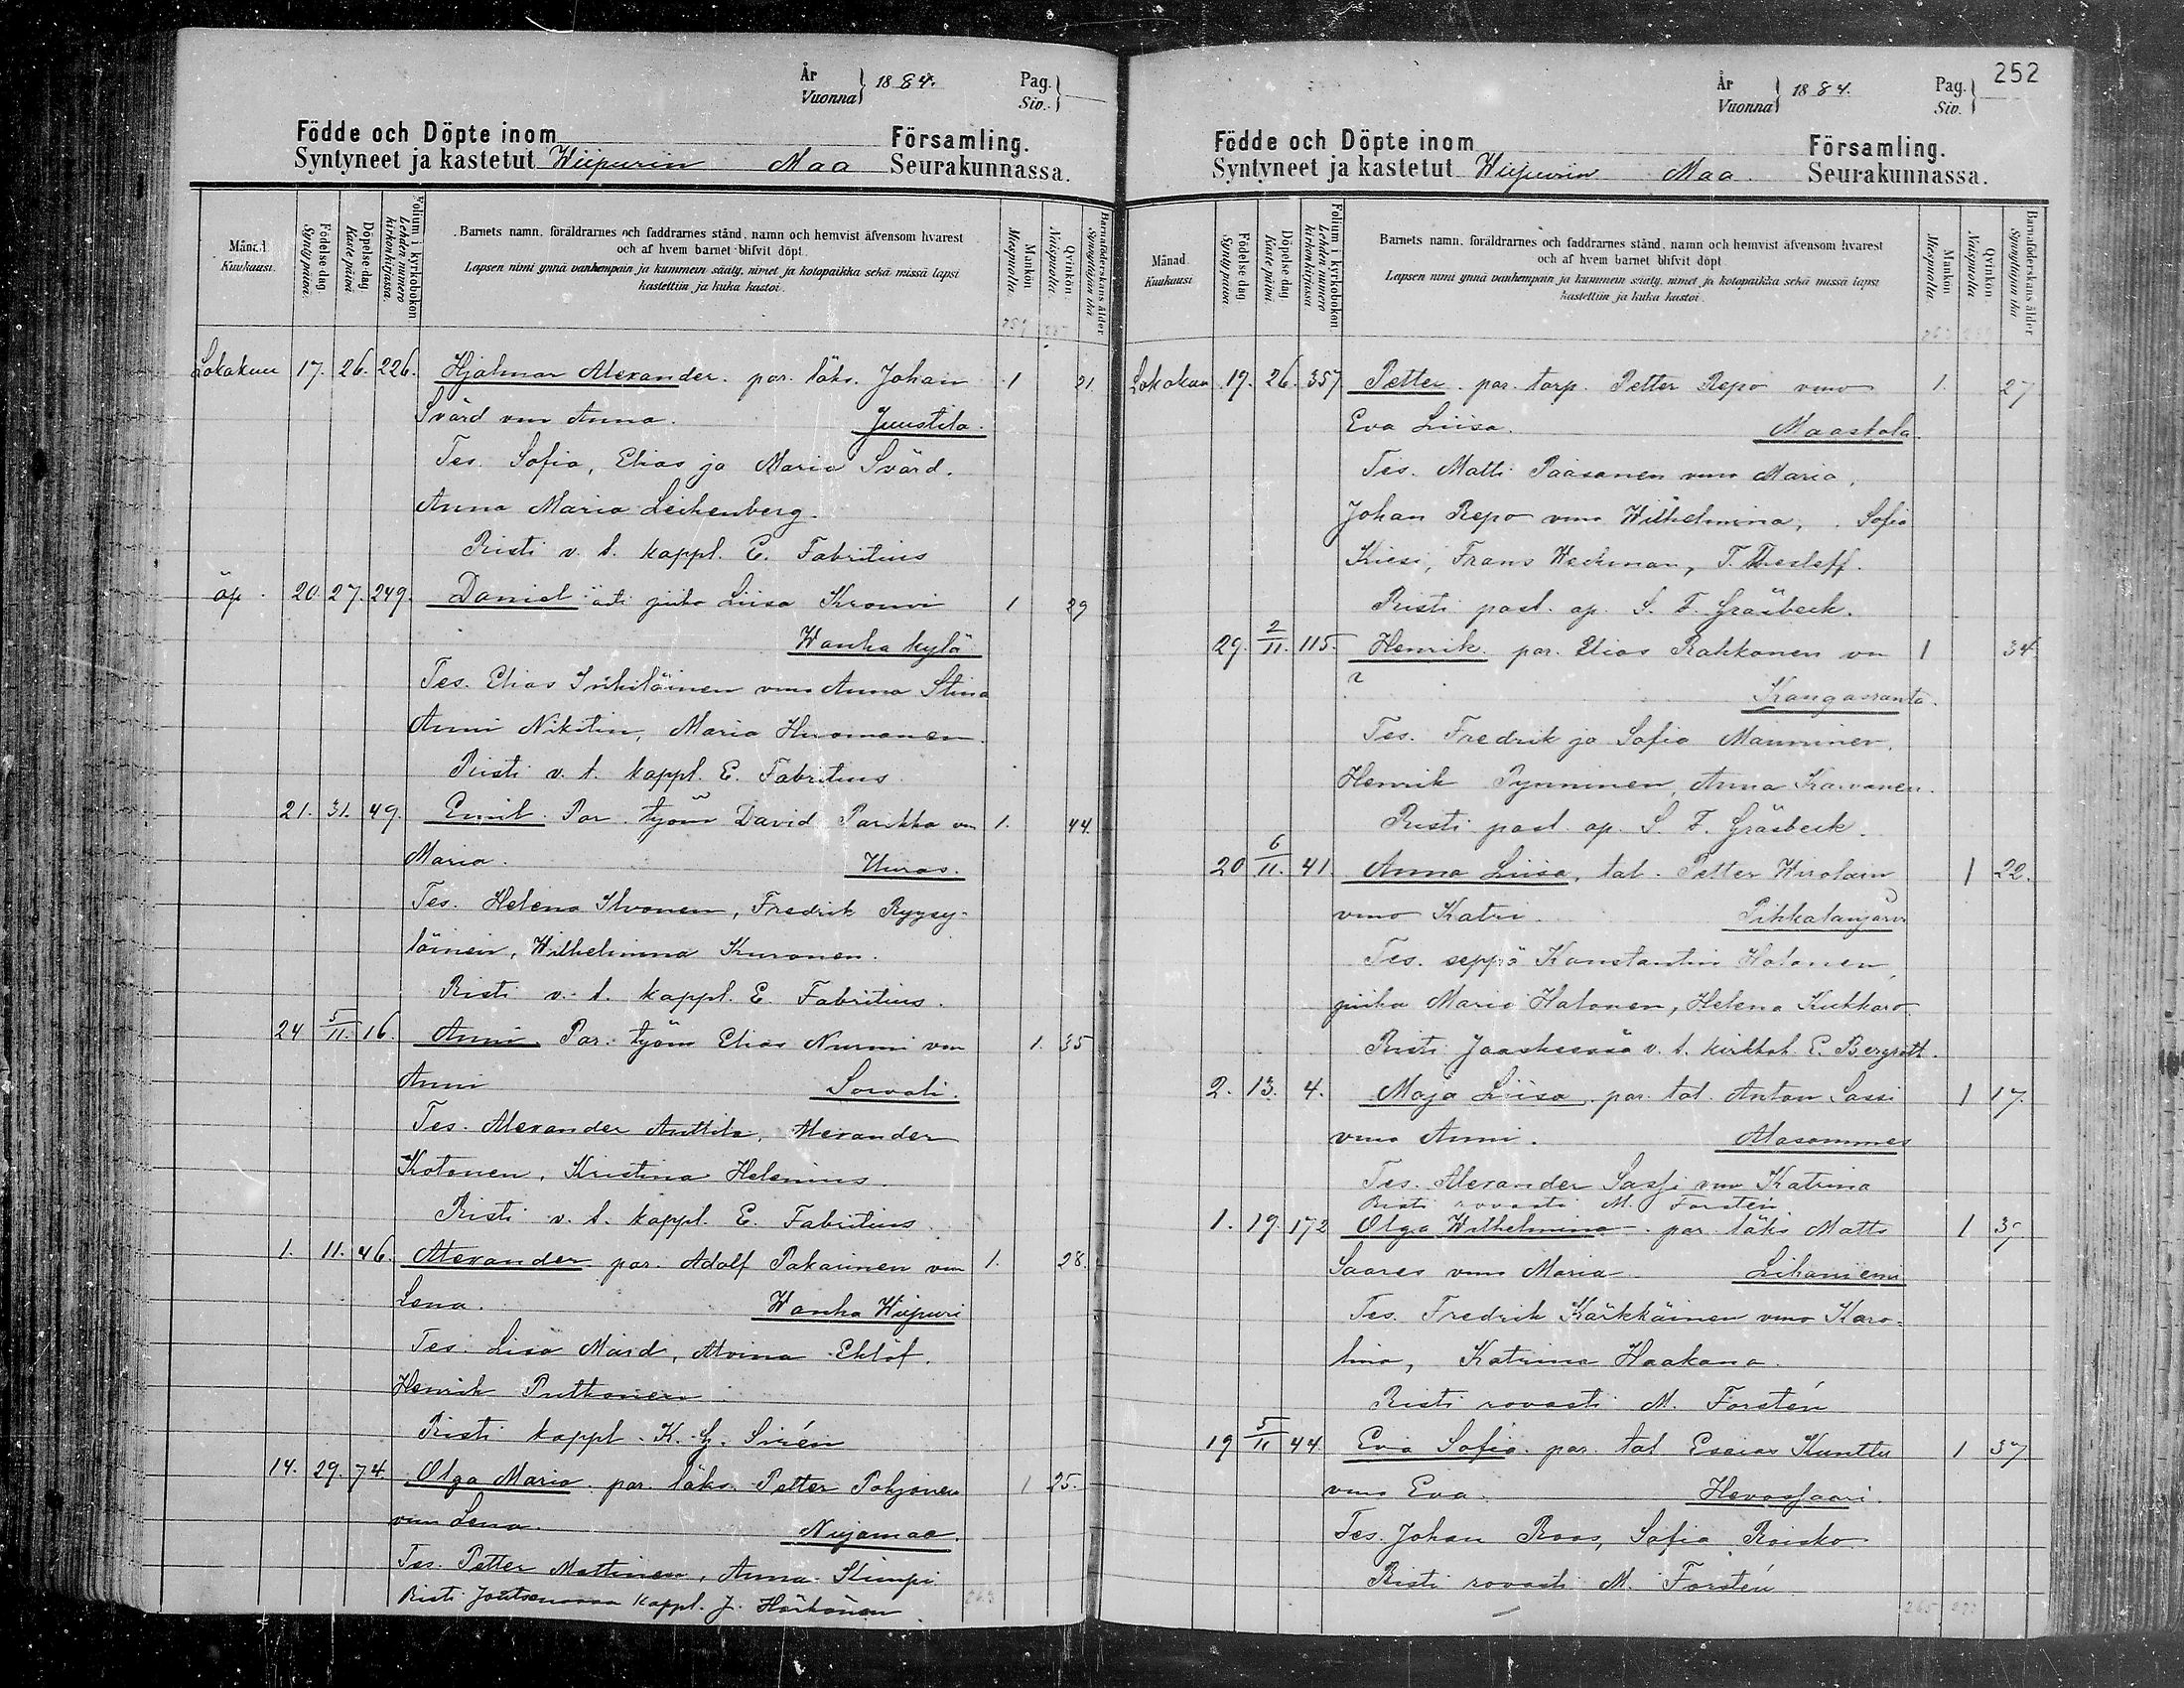 År
Vuonna } 1884. Pag.
Siv. }
Födde och Döpte inom Församling.
Syntyneet ja kastetut Wiipurin Maa Seurakunnassa.
Månad.
Kuukausi.
Födelse dag.
Synty päivä.
Döpelse dag
Kaste päivä
Folium i kyrkoboken.
Lehden numero kirkonkirjassa.
Barnets namn, föräldrarnes och faddrarnes stånd, namn och hemvist äfvensom hvarest
och af hvem barnet blifvit döpt.
Lapsen nimi ynnä vanhempain ja kummein sääty, nimet ja kotopaikka sekä missä lapsi
kastettiin ja kuka kastoi.
Mankön.
Miespuolia.
Qvinkön.
Naispuolia.
Barnaföderskans ålder
Synnyttäjän ikä
Lokakuu 17. 26. 226. Hjalmar Alexander. par. läks. Johan 1 21.
Svärd vmo Anna. Juustila.
Tes. Sofia, Elias ja Maria Svärd.
Anna Maria Leihenberg.
Risti v. t. kappl. E. Fabritius
äp. 20. 27. 249. Daniel äiti piika Liisa Kromi 1 29
Wanha kylä
Tes. Elias Inkiläinen vmo Anna Stina
Anni Nikitin, Maria Huomanen.
Risti v. t. kappl. E. Fabritius
21. 31. 49. Emil. Par. työm David Parikka vm 1. 44.
Maria. Uuras.
Tes. Helena Ilvonen, Fredrik Ryysy-
läinen, Wilhelmina Kuronen.
Risti v. t. kappl. E. Fabritius.
24 5/11. 16. Anni. Par. työm Elias Nurmi vm 1. 35
Anni Sorvali.
Tes. Alexander Anttila, Alexander
Kotonen, Kristina Helenius.
Risti v. t. kappl. E. Fabritius
1. 11. 46. Alexander par. Adolf Pakarinen vm 1. 28.
Lena. Wanha Wiipuri
Tes. Lisa Maid, Alvina Eklöf.
Henrik Putkonen
Risti kappl. K. G. Sirén
14. 29. 74 Olga Maria. par. läks. Petter Pohjonen 1 25.
vmo Lena. Nuijamaa.
Tes. Petter Mattinen, Anna Kimpi
Risti Joutsenossa kappl. J. Härkönen.
252
År
Vuonna } 1884. Pag.
Siv. }
Födde och Döpte inom Församling.
Syntyneet ja kastetut Wiipurin Maa Seurakunnassa.
Månad
Kuukausi
Födelse dag
Synty päivä.
Döpelse dag
Kaste päivä.
Folium i kyrkoboken.
Lehden numero kirkonkirjassa.
Barnets namn, föräldrarnes och faddrarnes stånd, namn och hemvist äfvensom hvarest
och af hvem barnet blifvit döpt
Lapsen nimi ynnä vanhempain ja kummein sääty, nimet ja kotopaikka sekä missä lapsi
kastettiin ja kuka kastoi.
Mankön
Miespuolia.
Qvinkön
Naispuolia
Barnaföderskans ålder
Synnyttäjän ikä
Lokakuu 17. 26. 357 Petter. par. torp. Petter Repo vmo 1. 27
Eva Liisa. Maaskola.
Tes. Matti Paasonen vmo Maria,
Johan Repo vmo Wilhelmina, Sofia
Kiesi, Frans Weckman, T. Thesleff.
Risti past. ap. S. F. Gräsbeck.
29. 2/11. 115. Henrik. par. Elias Rakkonen vm 1 34.
? Kangasranta.
Tes. Fredrik ja Sofia Manninen,
Henrik Pynninen, Anna Karvanen.
Risti past. ap. S. F. Gräsbeck.
20 6/11. 41. Anna Liisa, tal. Petter Wirolain 1 22.
vmo Katri. Pihkalanjärvi
Tes. seppä Konstantin Hatonen,
piika Maria Hatonen, Helena Kukkaro.
Risti Jaaskessa v. t. kirkkoh. E. Bergrott.
2. 13. 4. Maja Liisa. par. tal. Anton Sassi 1 17.
vmo Anni. Alasommee
Tes. Alexander Sassi vmo Katrina
Risti rovasti M. Forstén
1. 19. 172 Olga Wilhelmina. par. läks Matts 1 39
Saares vmo Maria Lihaniemi
Tes. Fredrik Kärkkäinen vmo Karo-
lina, Katrina Haakana.
Risti rovasti M. Forstén
19 5/11 44 Eva Sofia. par. tal Esaias Kunttu 1 37
vmo Eva. Hevossaari.
Tes. Johan Roos, Sofia Roisko
Risti rovasti M. Forstén